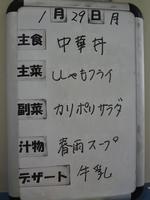 1月29日月
主食 中華丼
主菜 ししゃもフライ
副菜 カリポリサラダ
汁物 春雨スープ
デザート 牛乳